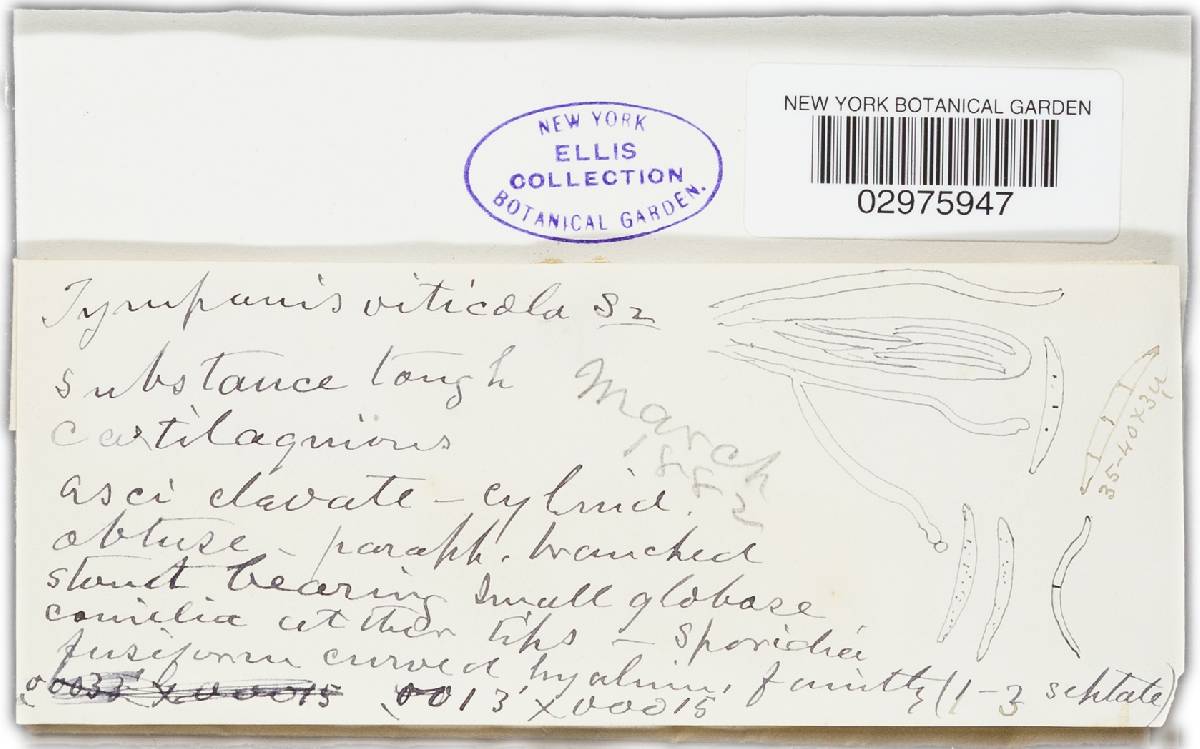 NEW YORK
ELLIS
COLLECTION
BOTANICAL GARDEN.
NEW YORK BOTANICAL GARDEN
02975947
Tympanis viticola Sz
Substance tough
Cartilaginious
March
1882
asci clavate – cylind.
obtuse – paraph. branched
stout bearing small globose
conidia at their tips – Sporidia
fusiform curved hyalin, faintly (1-3 septate)
.00035 x 00015 .0013 x 00015
35-40 x 3µ